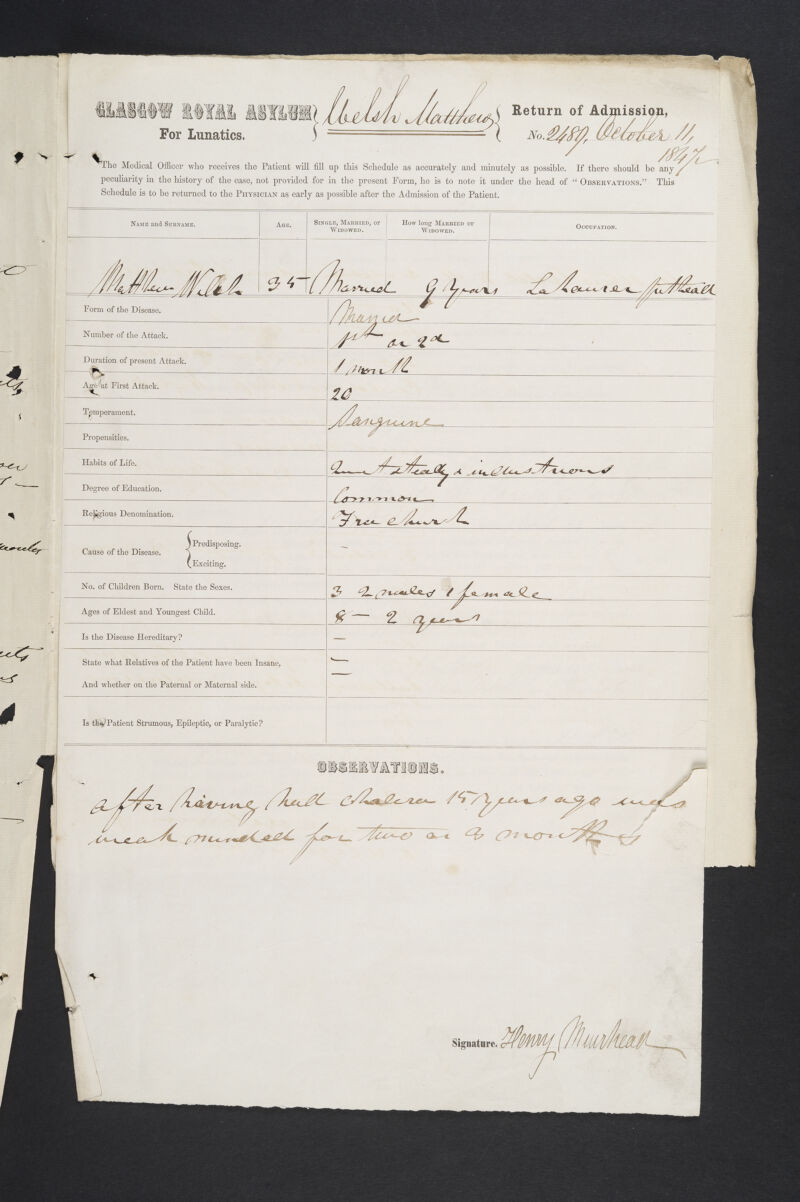 GLASGOW ROYAL ASYLUM
For Lunatics.
Welsh Matthew
Return of Admission,
No. 2489, October 11, 1847
The Medical Officer who receives the Patient will fill up this Schedule as accurately and minutely as possible. If there should be any
peculiarity in the history of the case, not provided for in the present Form, he is to note it under the head of "OBSERVATIONS." This
Schedule is to be returned to the PHYSICIAN as early as possible after the Admission of the Patient.
NAME and SURNAME. AGE. SINGLE, MARRIED, OR WIDOWED. How long MARRIED OR WIDOWED. OCCUPATION.
Matthew Welsh 35 Married 9 years Labourer pithead
Form of the Disease.
Number of the Attack. 1st or 2d
Duration of present Attack. 1 month
Age at First Attack. 20
Temperament. Sanguine
Propensities.
Habits of Life. steady & industrious
Degree of Education. Common
Religious Denomination. Free church
Cause of the Disease. Predisposing. –
Exciting.
No. of Children Born. State the Sexes. 3 2 males 1 female
Ages of Eldest and Youngest Child. 8 – 2 years
Is the Disease Hereditary? –
State what Relatives of the Patient have been Insane, –
And whether on the Paternal or Maternal side. –
Is the Patient Strumous, Epileptic, or Paralytic?
OBSERVATIONS.
after having had cholera 15 years ago was
weak minded for two or 3 months
Signature. Henry Muirhead